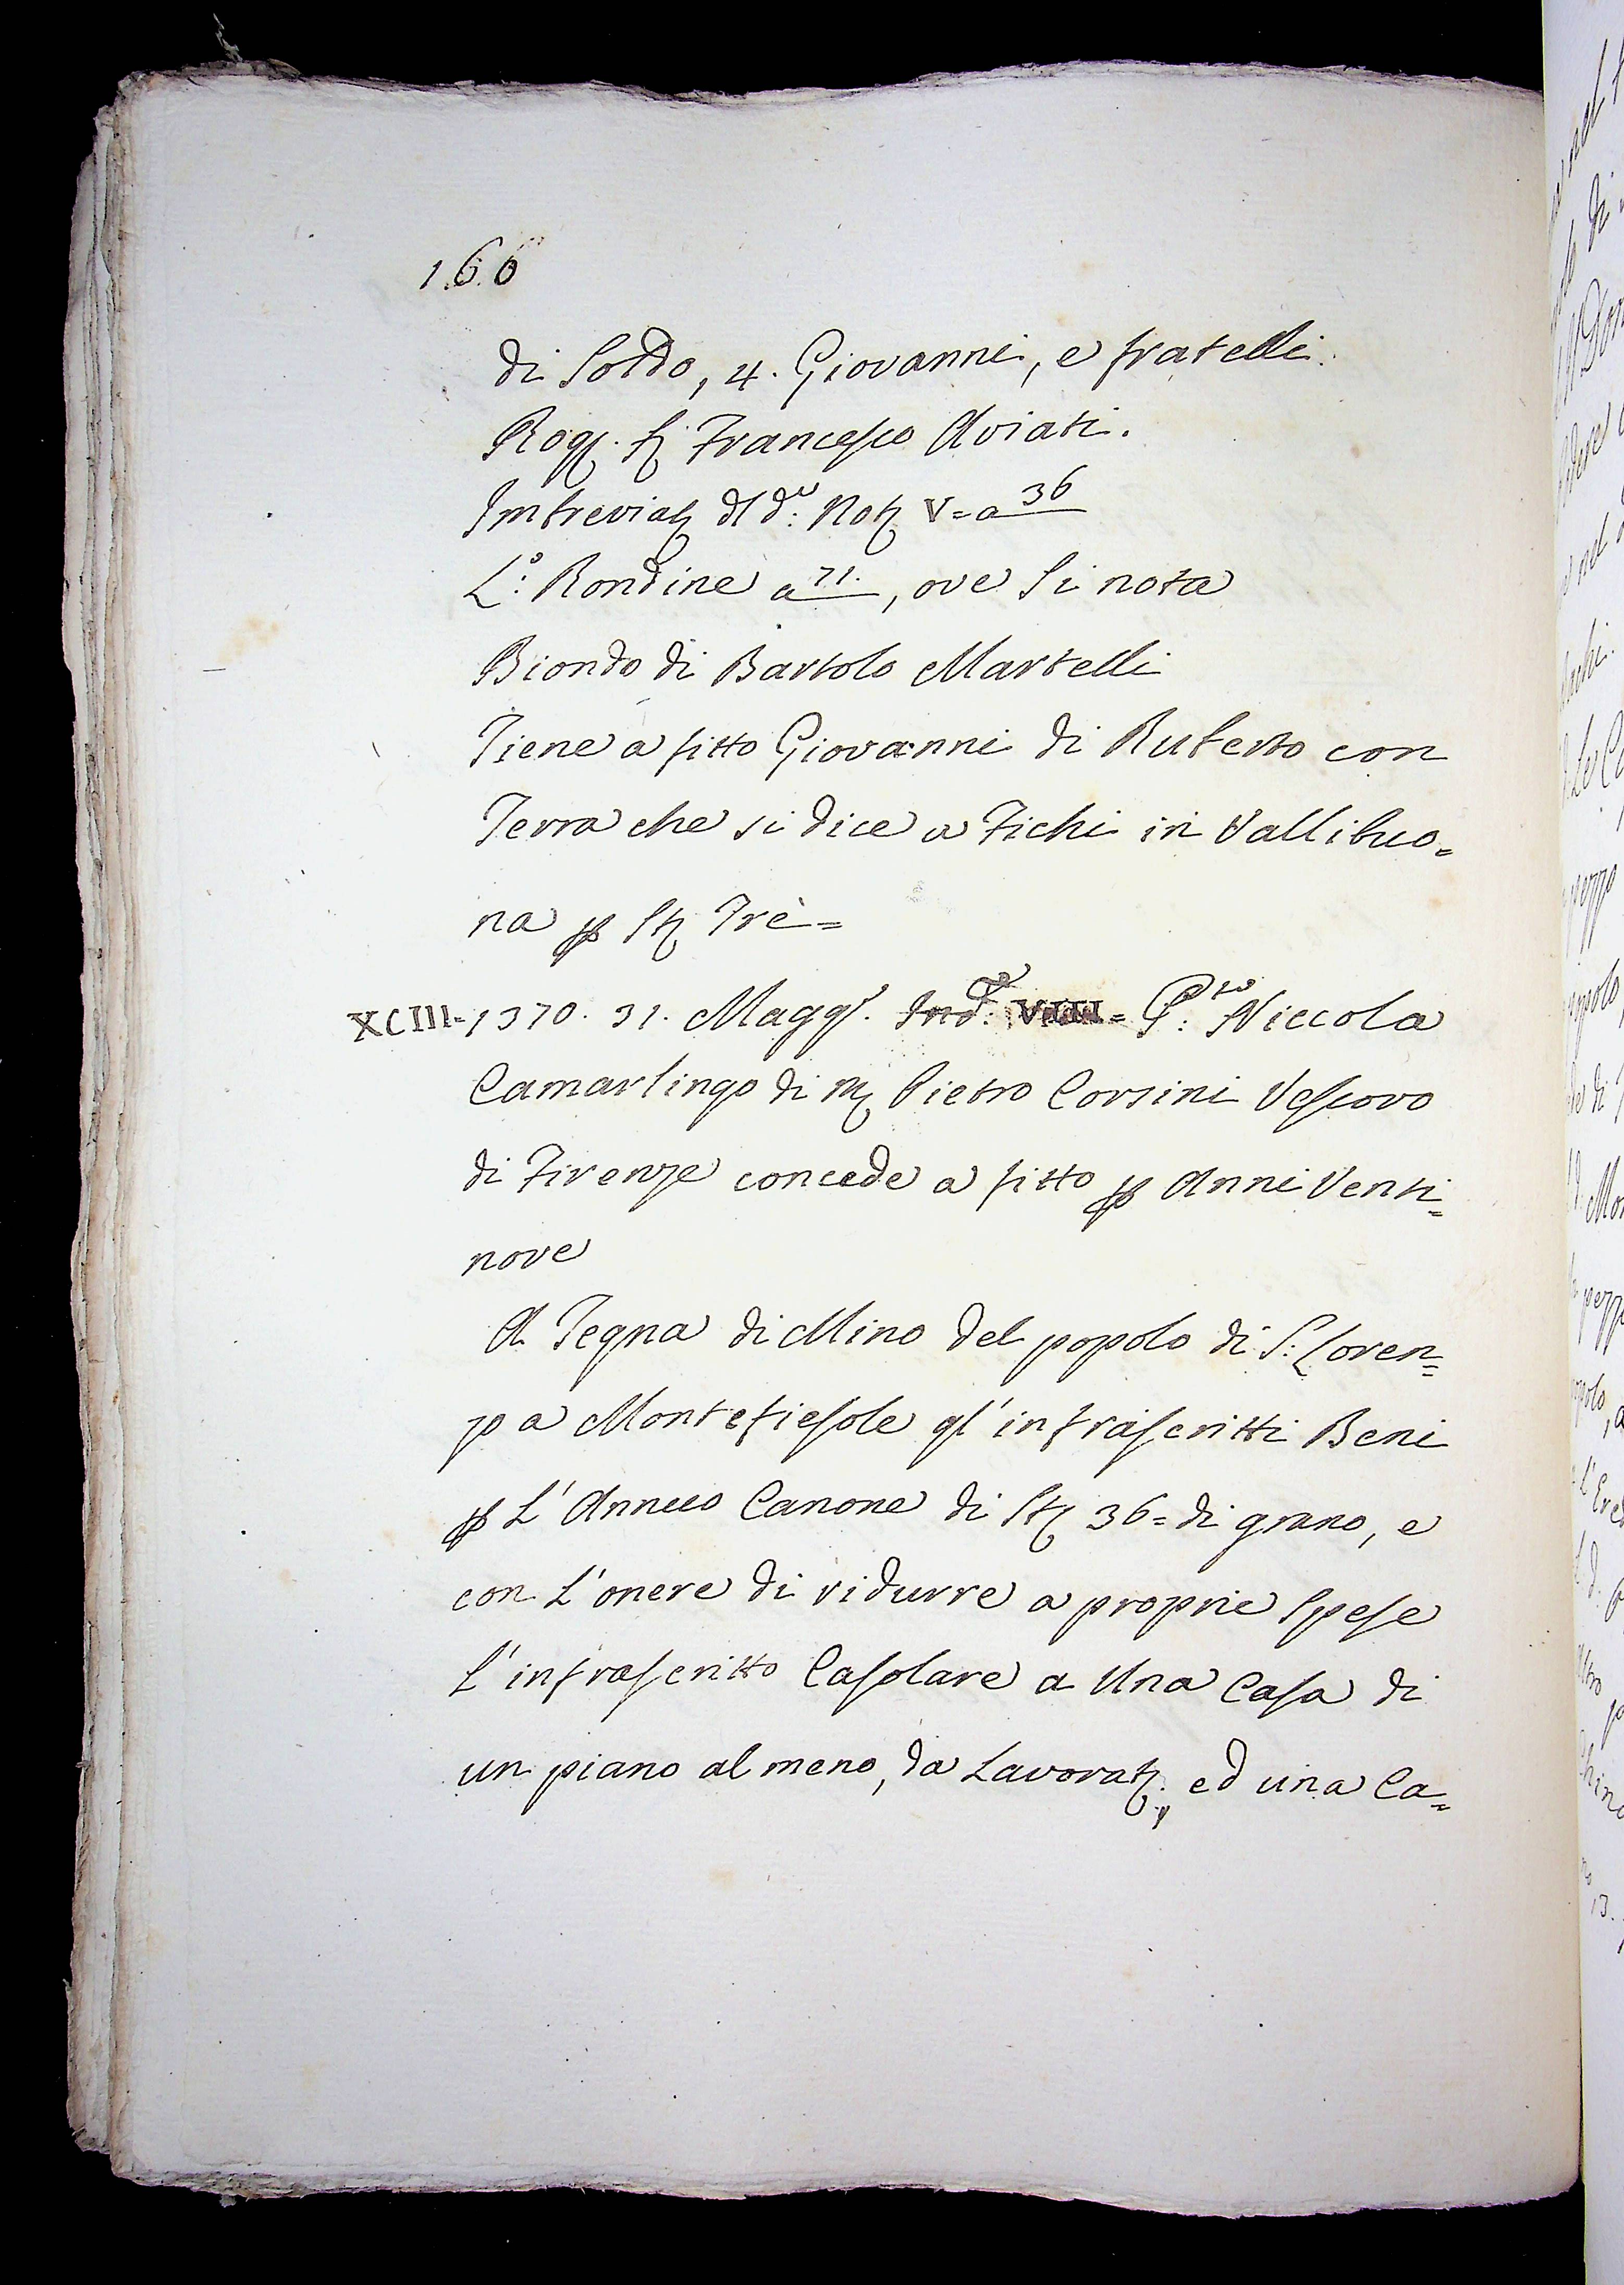 166
di Soldo, 4. Giovanni, e fratelli.
Rog. S. Francesco Aviati.
Imbreviat. dl do: Not. V=a 36
Lo: Rondine a 71., ove Si nota
Biondo di Bartolo Martelli
Tiene a fitto Giovanni di Ruberto con
Terra che si dice a Fichi in Vallibuo=
na p St. Trè=
XCIII=1370. 31. Magg. Ind: VIII= P:to Niccola
Camarlingo di M. Pietro Corsini Vescovo
di Firenze concede a fitto p Anni Venti=
nove
A Tegna di Mino del popolo di S: Loren=
zo a Montefiesole gl' infrascritti Beni
p L' Annuo Canone di St. 36= di grano, e
con L' onere di ridurre a proprie Spese
L' infrascritto Casolare a Una Casa di
un piano al meno, da Lavorat., ed una Ca=